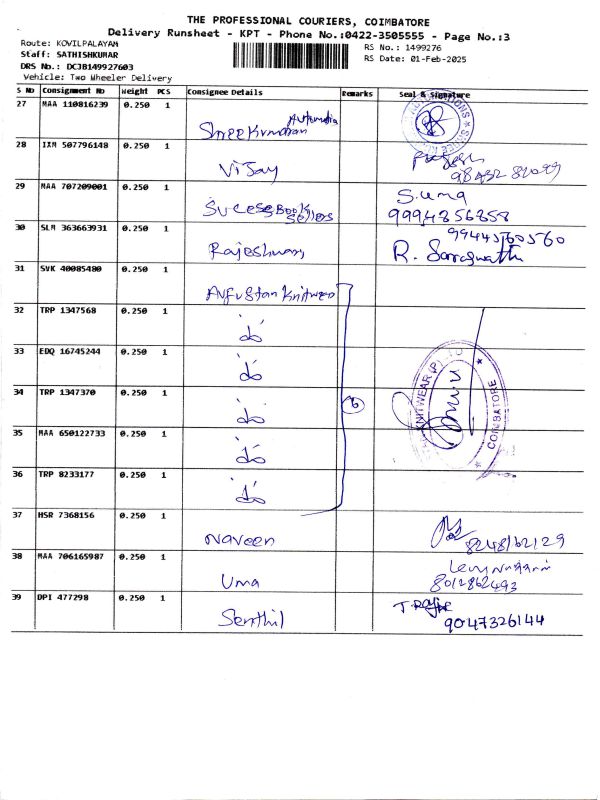 THE PROFESSIONAL COURIERS, COIMBATORE
Delivery Runsheet - KPT - Phone No.:0422-3505555 - Page No.:3
Route: KOVILPALAYAM
Staff: SATHISHKUMAR
DRS No.: DCJB149927603
Vehicle: Two Wheeler Delivery
RS No.: 1499276
RS Date: 01-Feb-2025
S No Consignment No Weight PCS Consignee Details Remarks Seal & Signature
27 MAA 110816239 0.250 1
28 IXM 507796148 0.250 1 Vijay
29 MAA 707209001 0.250 1 Sucess Book Sellers S.uma
30 SLM 363663931 0.250 1 Rajeshwari 9944560560
R. Saraswathi
31 SVK 40085480 0.250 1
32 TRP 1347568 0.250 1
33 EDQ 16745244 0.250 1
34 TRP 1347370 0.250 1 6
KNITWEAR (P) LTD
COIMBATORE
35 MAA 650122733 0.250 1
36 TRP 8233177 0.250 1
37 HSR 7368156 0.250 1 Naveen 8248162129
38 MAA 706165987 0.250 1 Uma 8012862493
39 DPI 477298 0.250 1 Senthil 9047326144